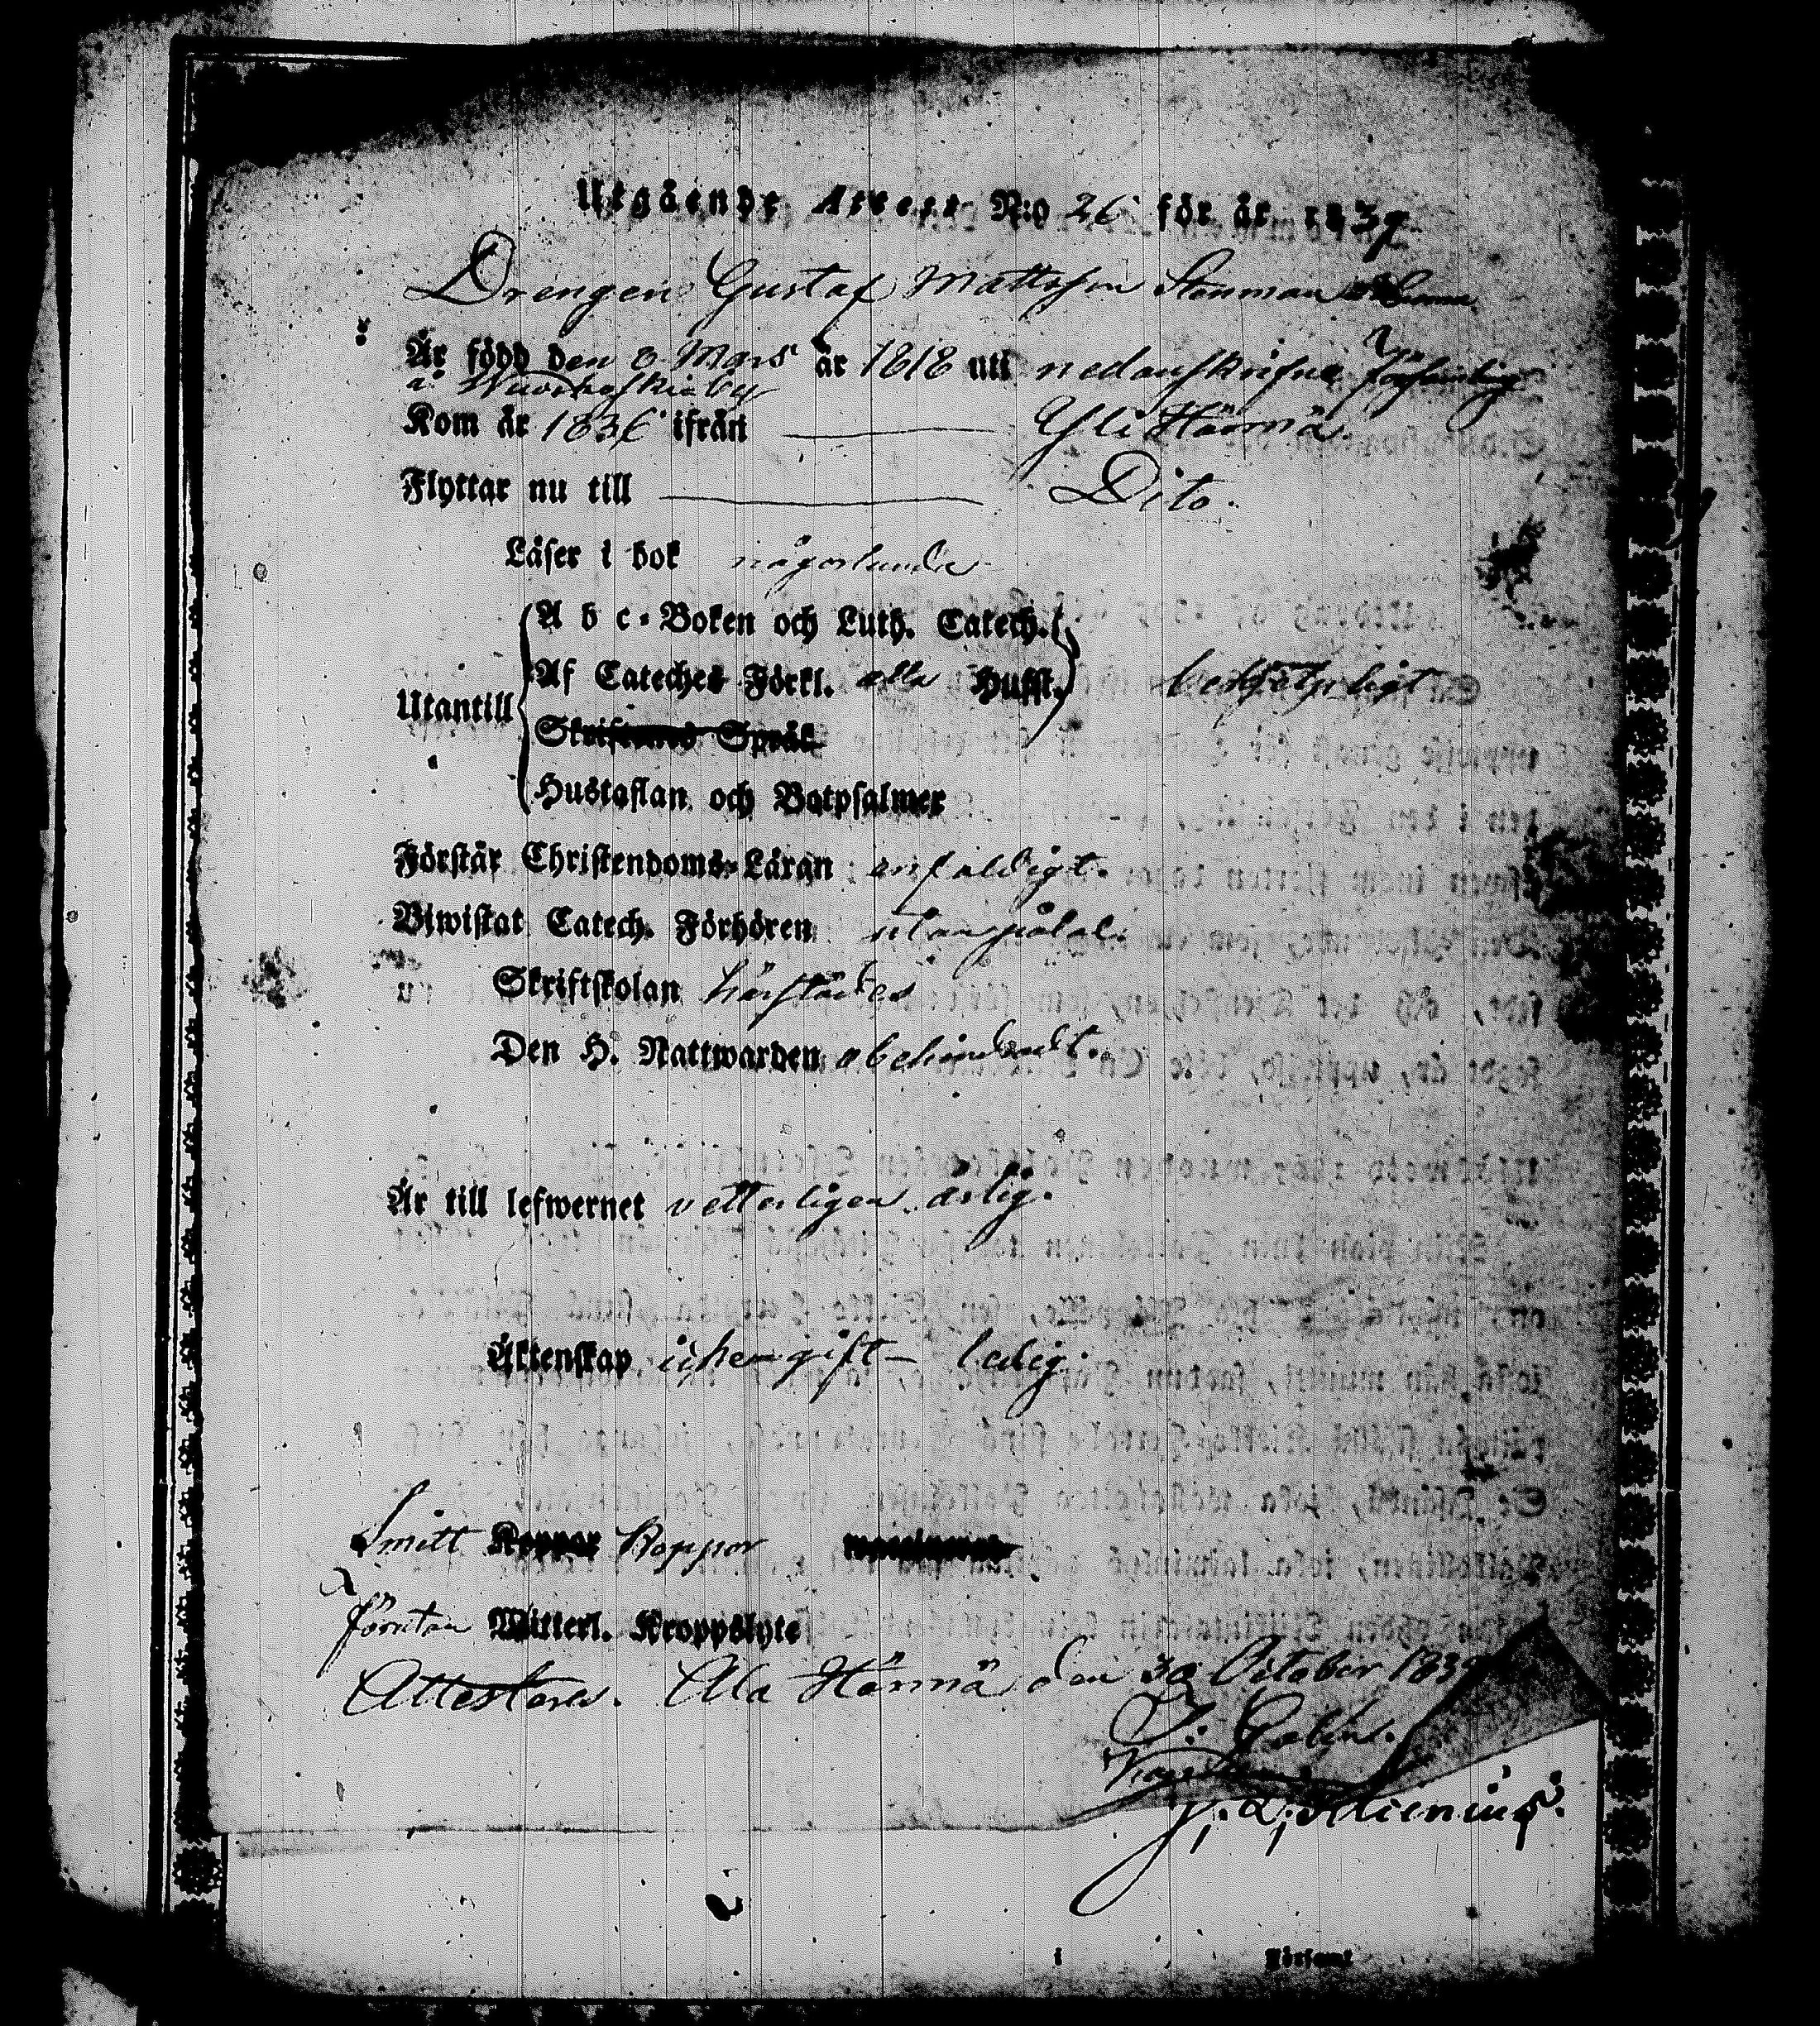 Utgående Attest N:o 26 för år 1839
Drengen Gustaf Mattsson Stenman
Är född den 8 Mars år 1818 uti nedanskrifne församling
å
Kom år 1836 ifrån Yli Härmä
Flyttar nu till Dito.
Läser i bok någorlunda
Utantill
A b c-Boken och Luth. Catech.
Af Cateches Förkl. alla Huffst.
Skriftenes Språk
Hustaflan och Botpsalmer
Förstår Christendoms-Läran enfaldigt.
Biwistat Catech. Förhören utan påtal.
Skriftskolan härstädes
Den H. Nattwarden obehindradt.
Är till lefwernet vetterligen ärlig.
Äktenskap icke gift - ledig.
Smitt Koppor Koppor
förutan Witterl. Kroppslyte
Attesteras. Ala Härmä den 30 October 1839
i Församl